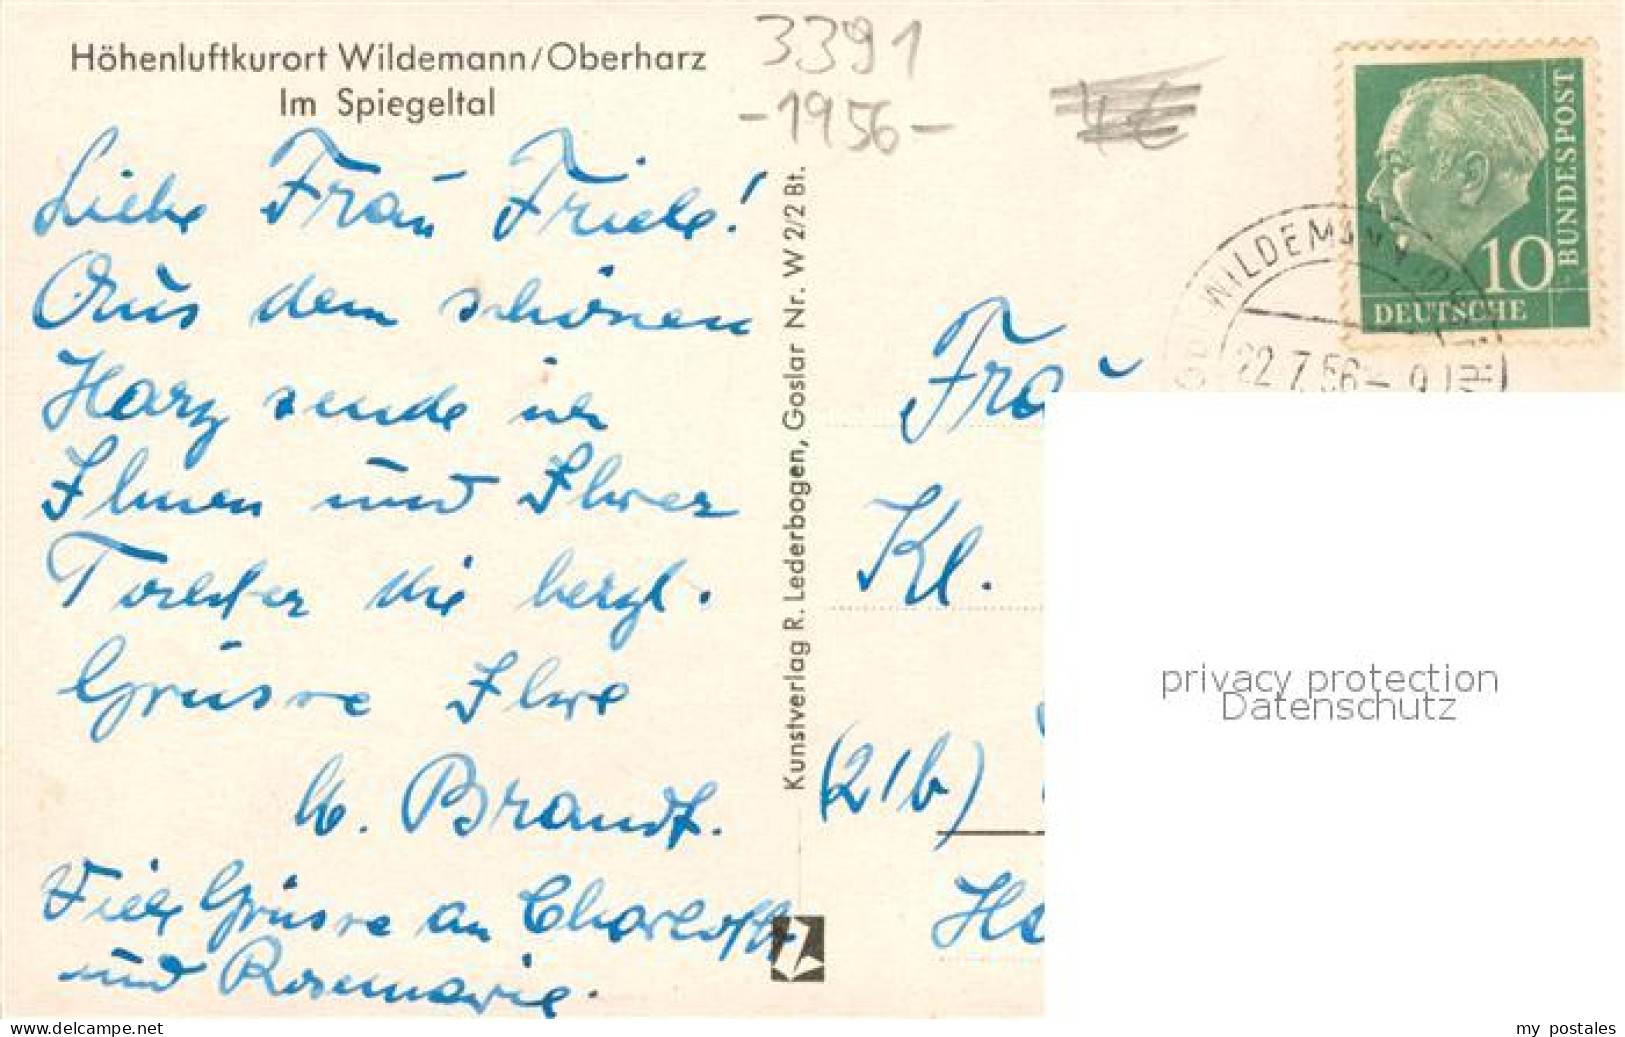 Höhenluftkurort Wildemann/Oberharz
Im Spiegeltal
3391
-1956-
4€
Liebe Frau Friele!
Aus dem schönen
Harz sende ich
Ihnen und Ihrer
Tochter die herzl.
Grüsse Ihre
Brandt.
Viele Grüsse an Charlotte
und Rosemarie.
Kunstverlag R. Lederbogen, Goslar Nr. W 2/2 Bt.
10
BUNDESPOST
DEUTSCHE
WILDEMANN
22.7.56
Frau
Kl.
(21b)
privacy protection
Datenschutz
Ansichtskarten-center.de
my postales